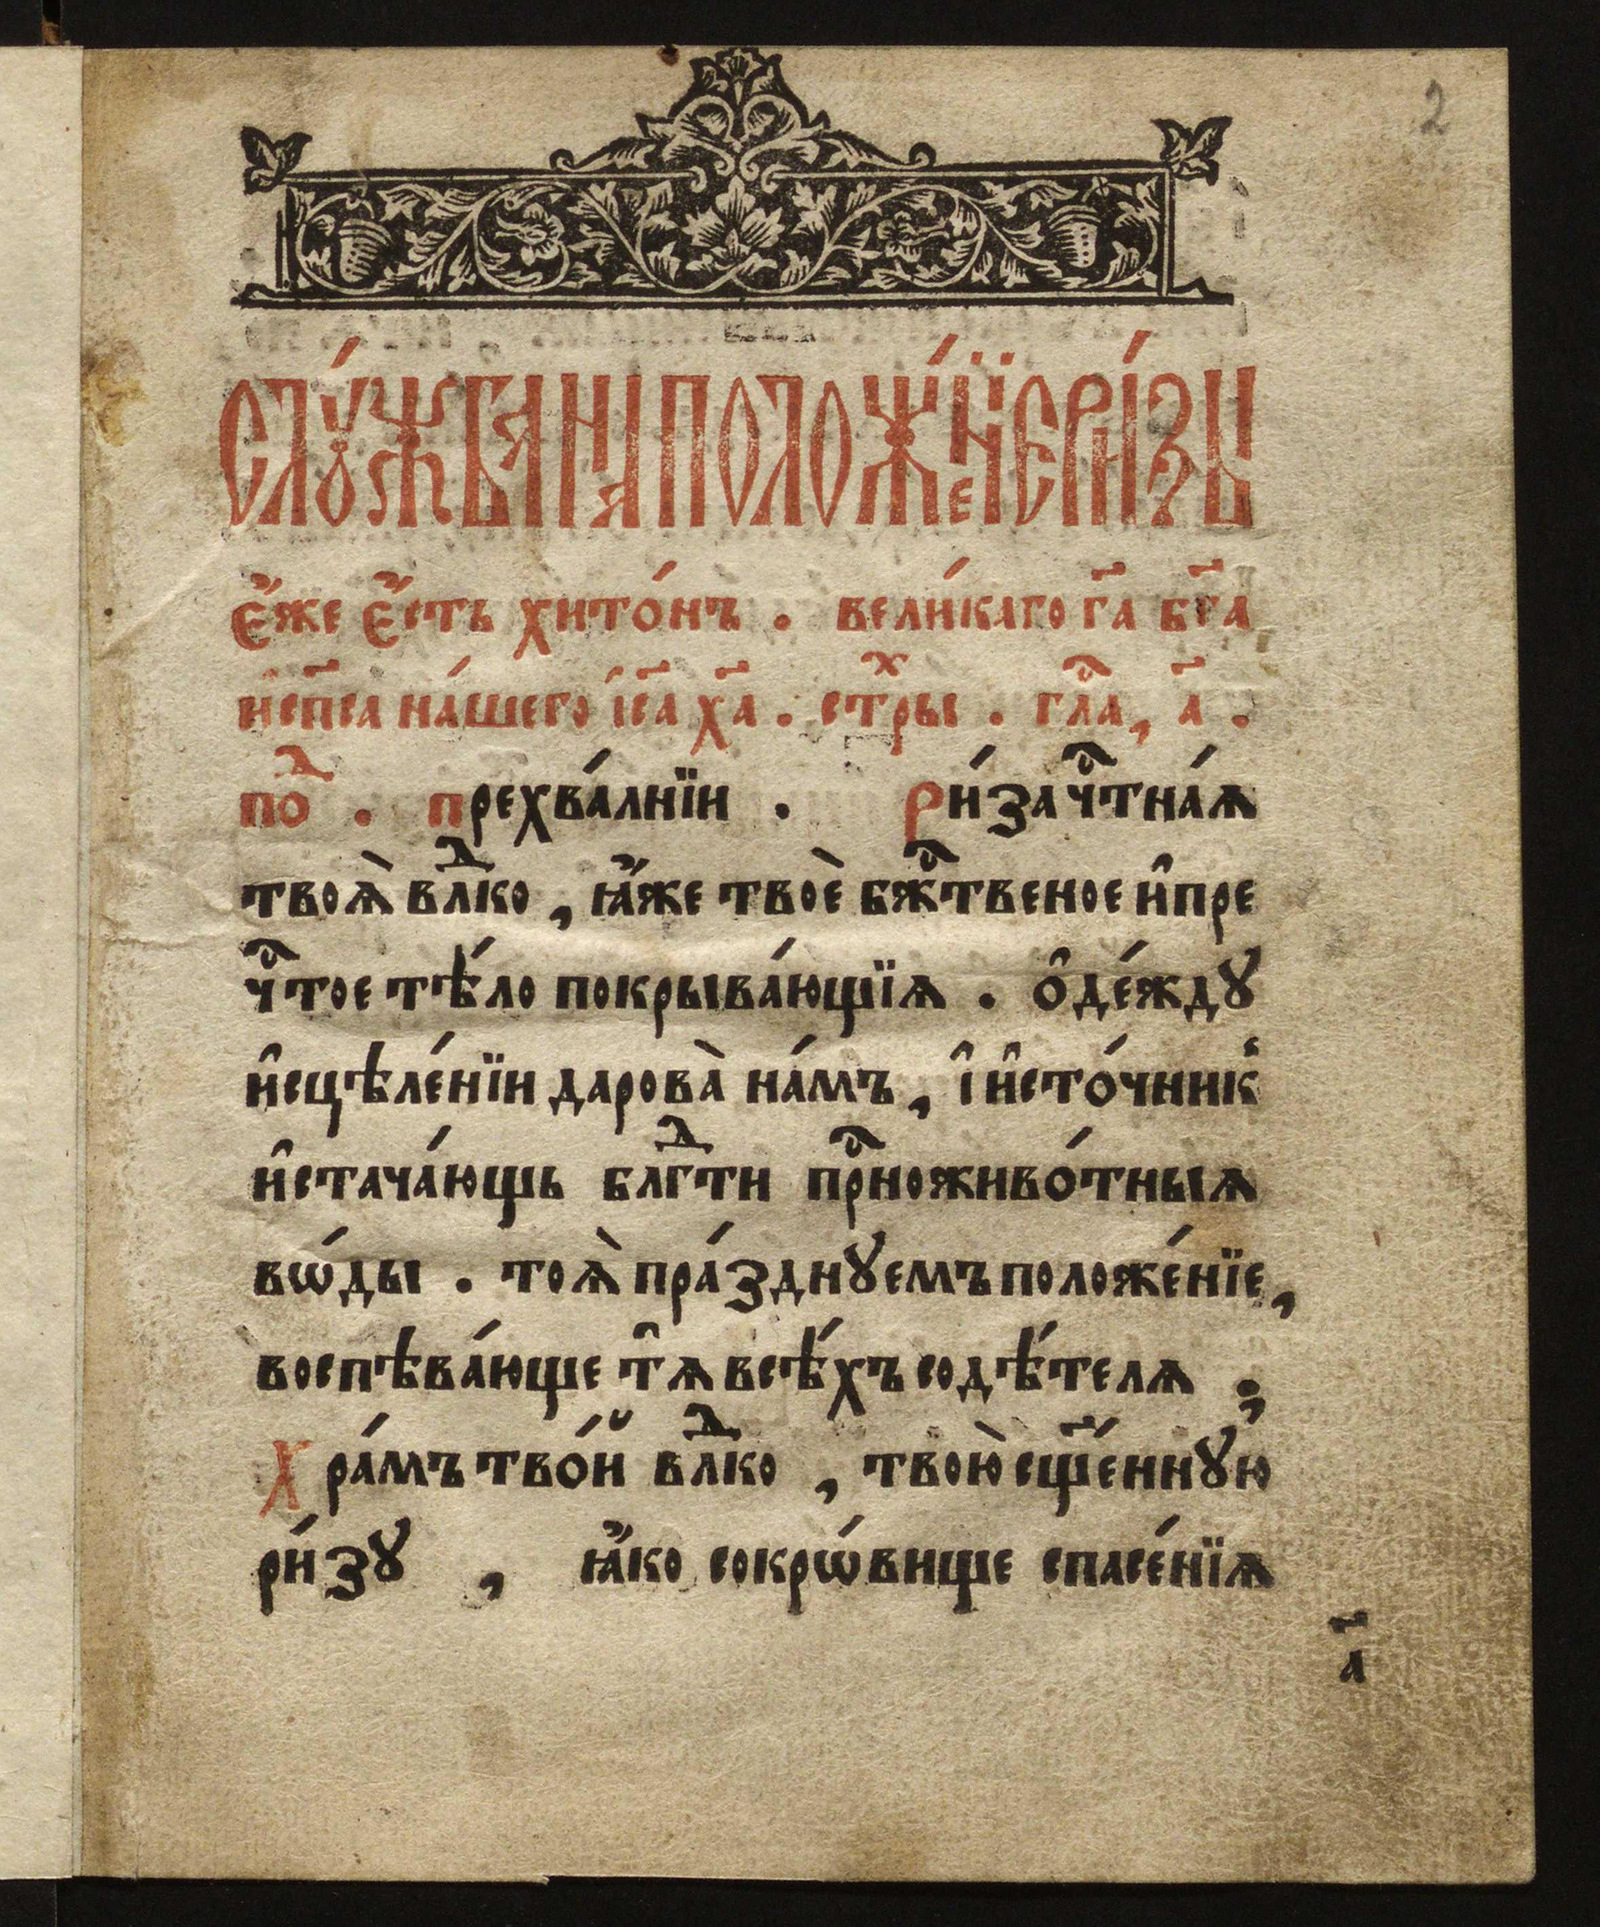 2
слꙋ́жба на положе́нїе ри́зы
є҆́же є҆́сть хито́нъ . вели́каго гⷭ҇а бг҃а
и҆сп҃са на́шего і҆с҃а хⷭ҇а . стⷯры . гла́ⷭ, а҃ .
поⷣ . прехва́лнїи . Ри́за чⷭ҇тна́ѧ
твоѧ̀ влⷣко , ꙗ҆́же твоѐ бжⷭ҇твеное и҆пре
чⷭ҇тое тѣ́ло покрыва́ющїѧ . ѻ҆де́ждꙋ
и҆сцѣле́нїи дарова̀ на́мъ , і҆ и҆сто́чник̾
и҆стача́ющь блгⷣти прⷭ҇ноживо́тныѧ
вѡ́ды . тоѧ̀ пра́зднꙋемъ положе́нїе ,
воспѣва́юще тѧ̑ всѣ́хъ содѣ́телѧ ;
Хра́мъ тво́й влⷣко , твою̀ сщ҃е́ннꙋю
ри́зꙋ , ꙗ҆́ко сокрѡ́вище спасе́нїѧ
а҃